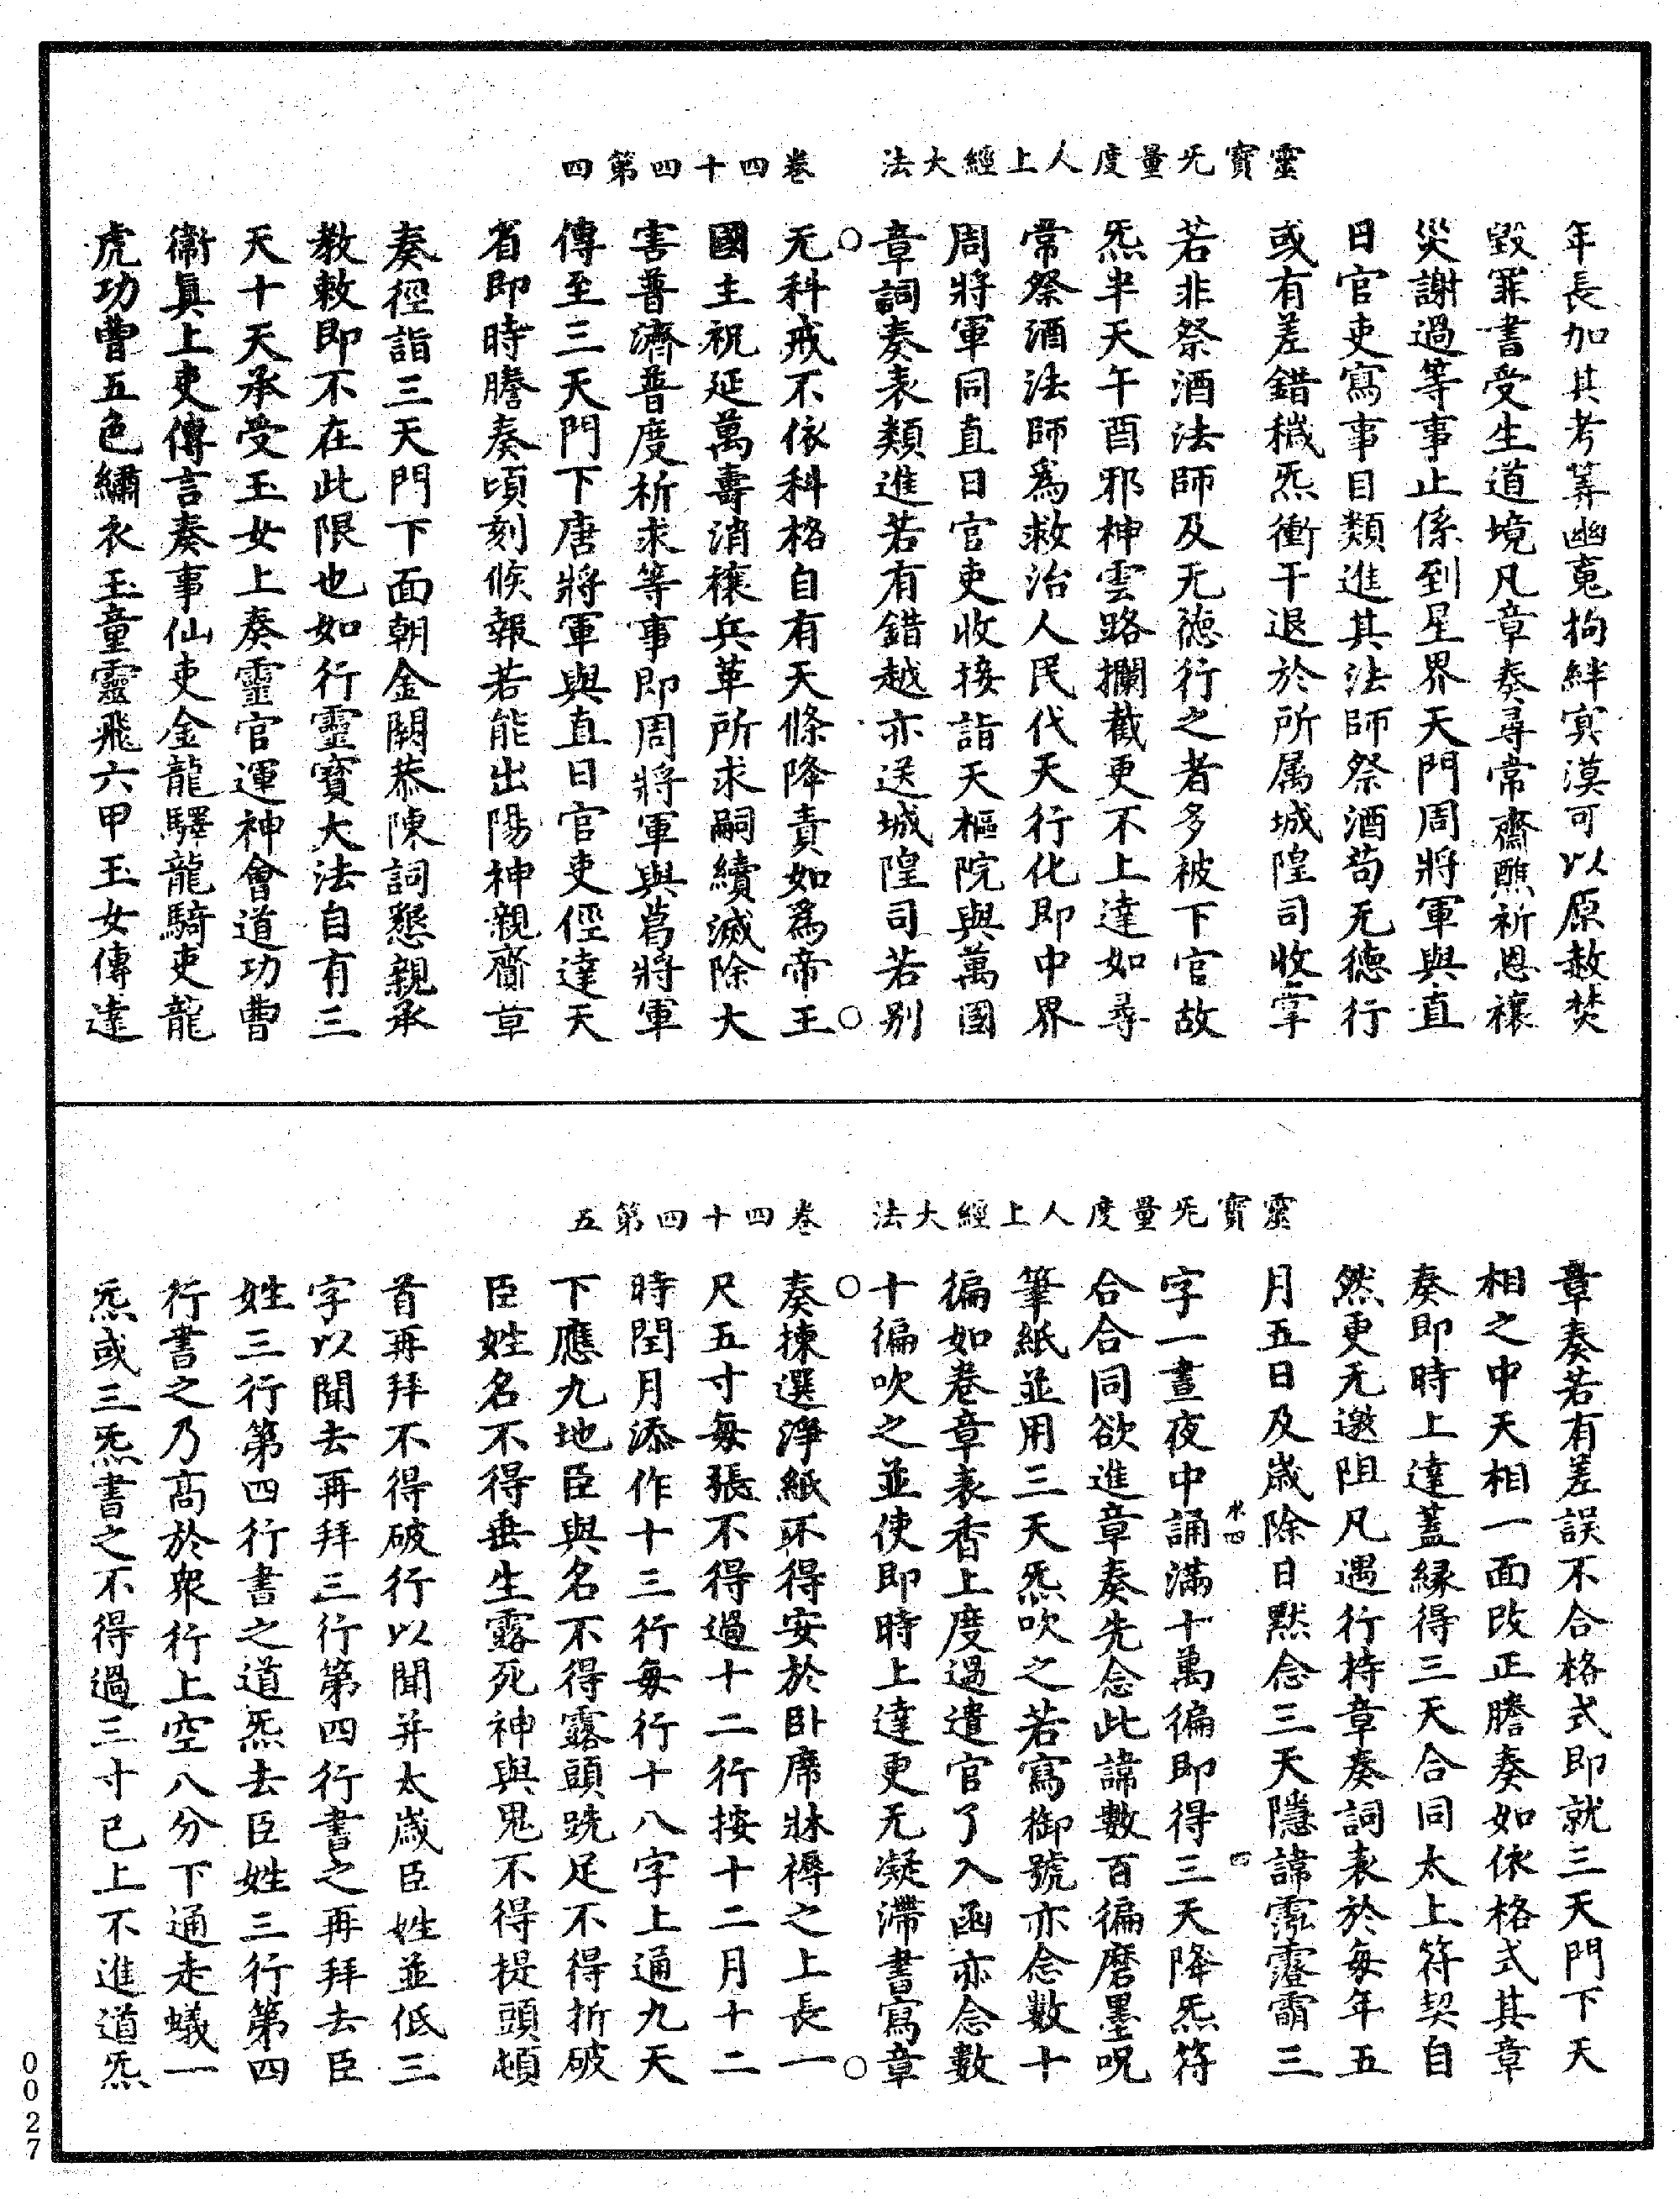 靈寶无量度人上經大法　卷四十四第四
年長加其考筭幽䰟拘絆㝠漠可以原赦焚
毀罪書受生道境凡章奏尋常齋醮祈恩禳
災謝過等事事止係到星界天門周將軍與直
日官吏寫事目類進其法師祭酒苟无德行
或有差錯穢炁衝干退於所属城隍司收掌
若非祭酒法師及无德行之者多被下官故
炁半天午酉邪神雲路攔截更不上達如尋
常祭酒法師爲救治人民代天行化即中界
周將軍同直日官吏收接詣天樞院與萬國
章詞奏表類進若有錯越亦送城隍司若别
无科戒不依科格自有天條降責如爲帝王
國主祝延萬壽消禳兵革所求嗣續滅除大
害普濟普度祈求等事即周將軍與葛將軍
傳至三天門下唐將軍與直日官吏徑達天
省即時謄奏頃刻候報若能出陽神親齎章
奏徑詣三天門下面朝金闕恭陳詞懇親承
教敕即不在此限也如行靈寶大法自有三
天十天承受玉女上奏靈官運神會道功曹
衞眞上吏傳言奏事仙吏金龍驛龍騎吏龍
虎功曹五色繡衣玉童靈飛六甲玉女傳達
靈寶无量度人上經大法　卷四十四第五
章奏若有差誤不合格式即就三天門下天
相之中天相一面改正謄奏如依格式其章
奏即時上達蓋緣得三天合同太上符契自
然更无邀阻凡遇行持章奏詞表於每年五
月五日及歲除日黙念三天隱諱霐霳霌三
字一晝夜中誦滿十萬徧即得三天降炁符
合合同欲進章奏先念此諱數百徧磨墨呪
筆紙並用三天炁吹之若寫御號亦念數十
徧如卷章表香上度過遣官了入函亦念數
十徧吹之並使即時上達更无凝滯書寫章
奏揀選淨紙不得安於卧席牀褥之上長一
尺五寸每張不得過十二行按十二月十二
時閏月添作十三行每行十八字上通九天
下應九地臣與名不得露頭跣足不得折破
臣姓名不得垂生露死神與鬼不得提頭頓
首再拜不得破行以聞并太歲臣姓並低三
字以聞去再拜三行第四行書之再拜去臣
姓三行第四行書之道炁去臣姓三行第四
行書之乃高於衆行上空八分下通走蟻一
炁或三炁書之不得過三寸已上不進道炁
0027